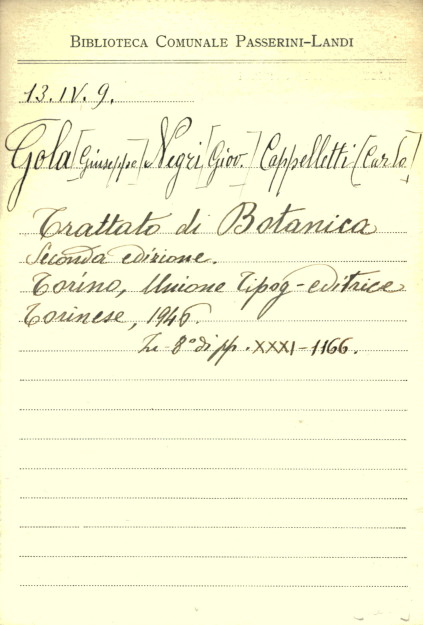 BIBLIOTECA COMUNALE PASSERINI-LANDI
13.IV.9.
Gola [Giuseppe] Negri [Giov.] Cappelletti [Carlo]
Trattato di Botanica
Seconda edizione.
Torino, Unione Tipog-editrice
Torinese, 1946.
In-8º di pp. XXXI-1166.